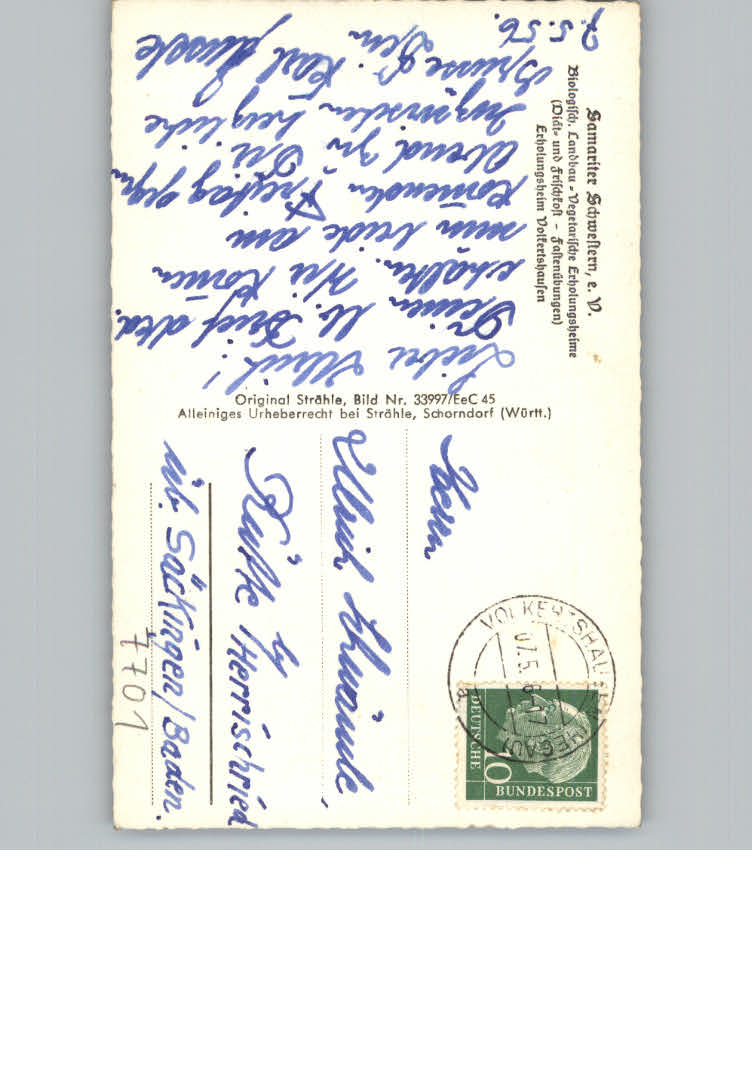 Samariter Schwestern, e. V.
Biologisch. Landbau - Vegetarische Erholungsheime
(Diät- und Frischkost - Fastenübungen)
Erholungsheim Volkertshausen
7.5.56.
Lieber Ulrich!
Deinen lb. Brief dkd.
erhalten. Wir komen
nun beide am
komenden Freitag gegen
Abend zu Dir
Inzwischen herzliche
Grüsse Dein Karl
Original Strähle, Bild Nr. 33997/EeC 45
Alleiniges Urheberrecht bei Strähle, Schorndorf (Württ.)
Herrn
Ullrich
Rütte b/ Herrischried
üb. Säckingen/Baden.
7701
VOLKERTSHAUSEN
HEGAU
a
07.5.
DEUTSCHE
BUNDESPOST
10